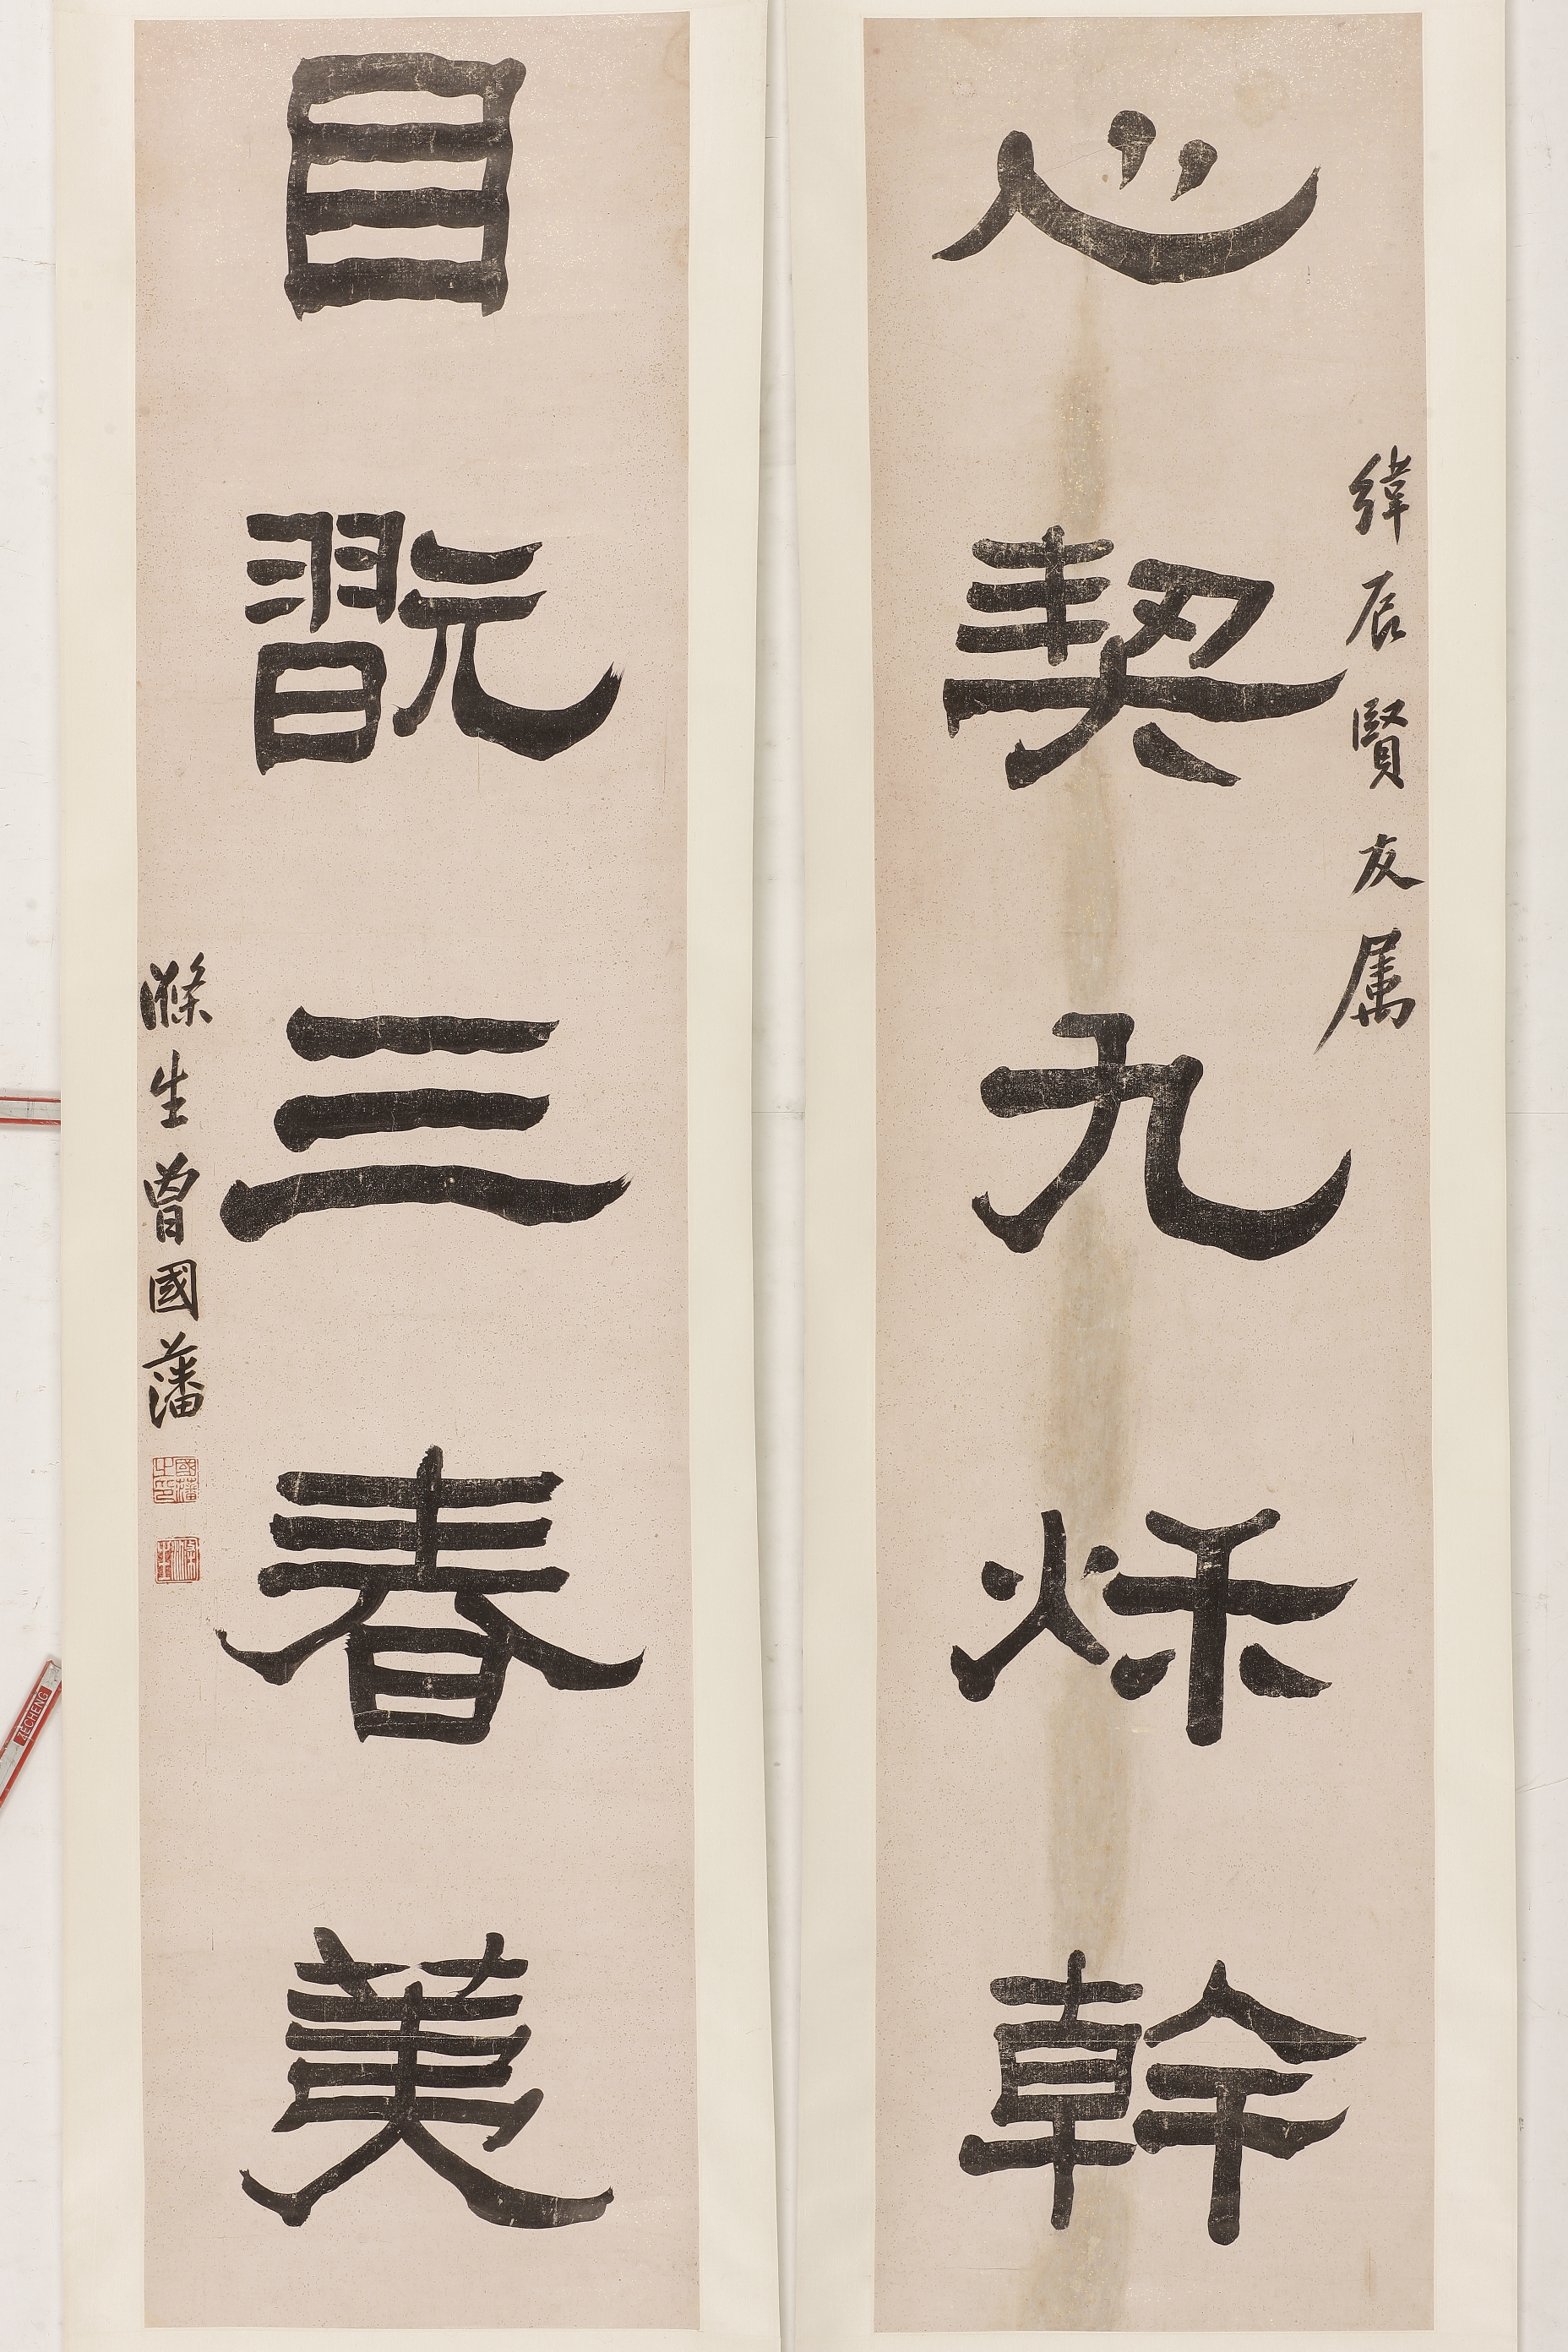 緯辰賢友属
心契九秌幹
目翫三春美
滌生曾國藩
國藩之印
滌生
ZECHENG